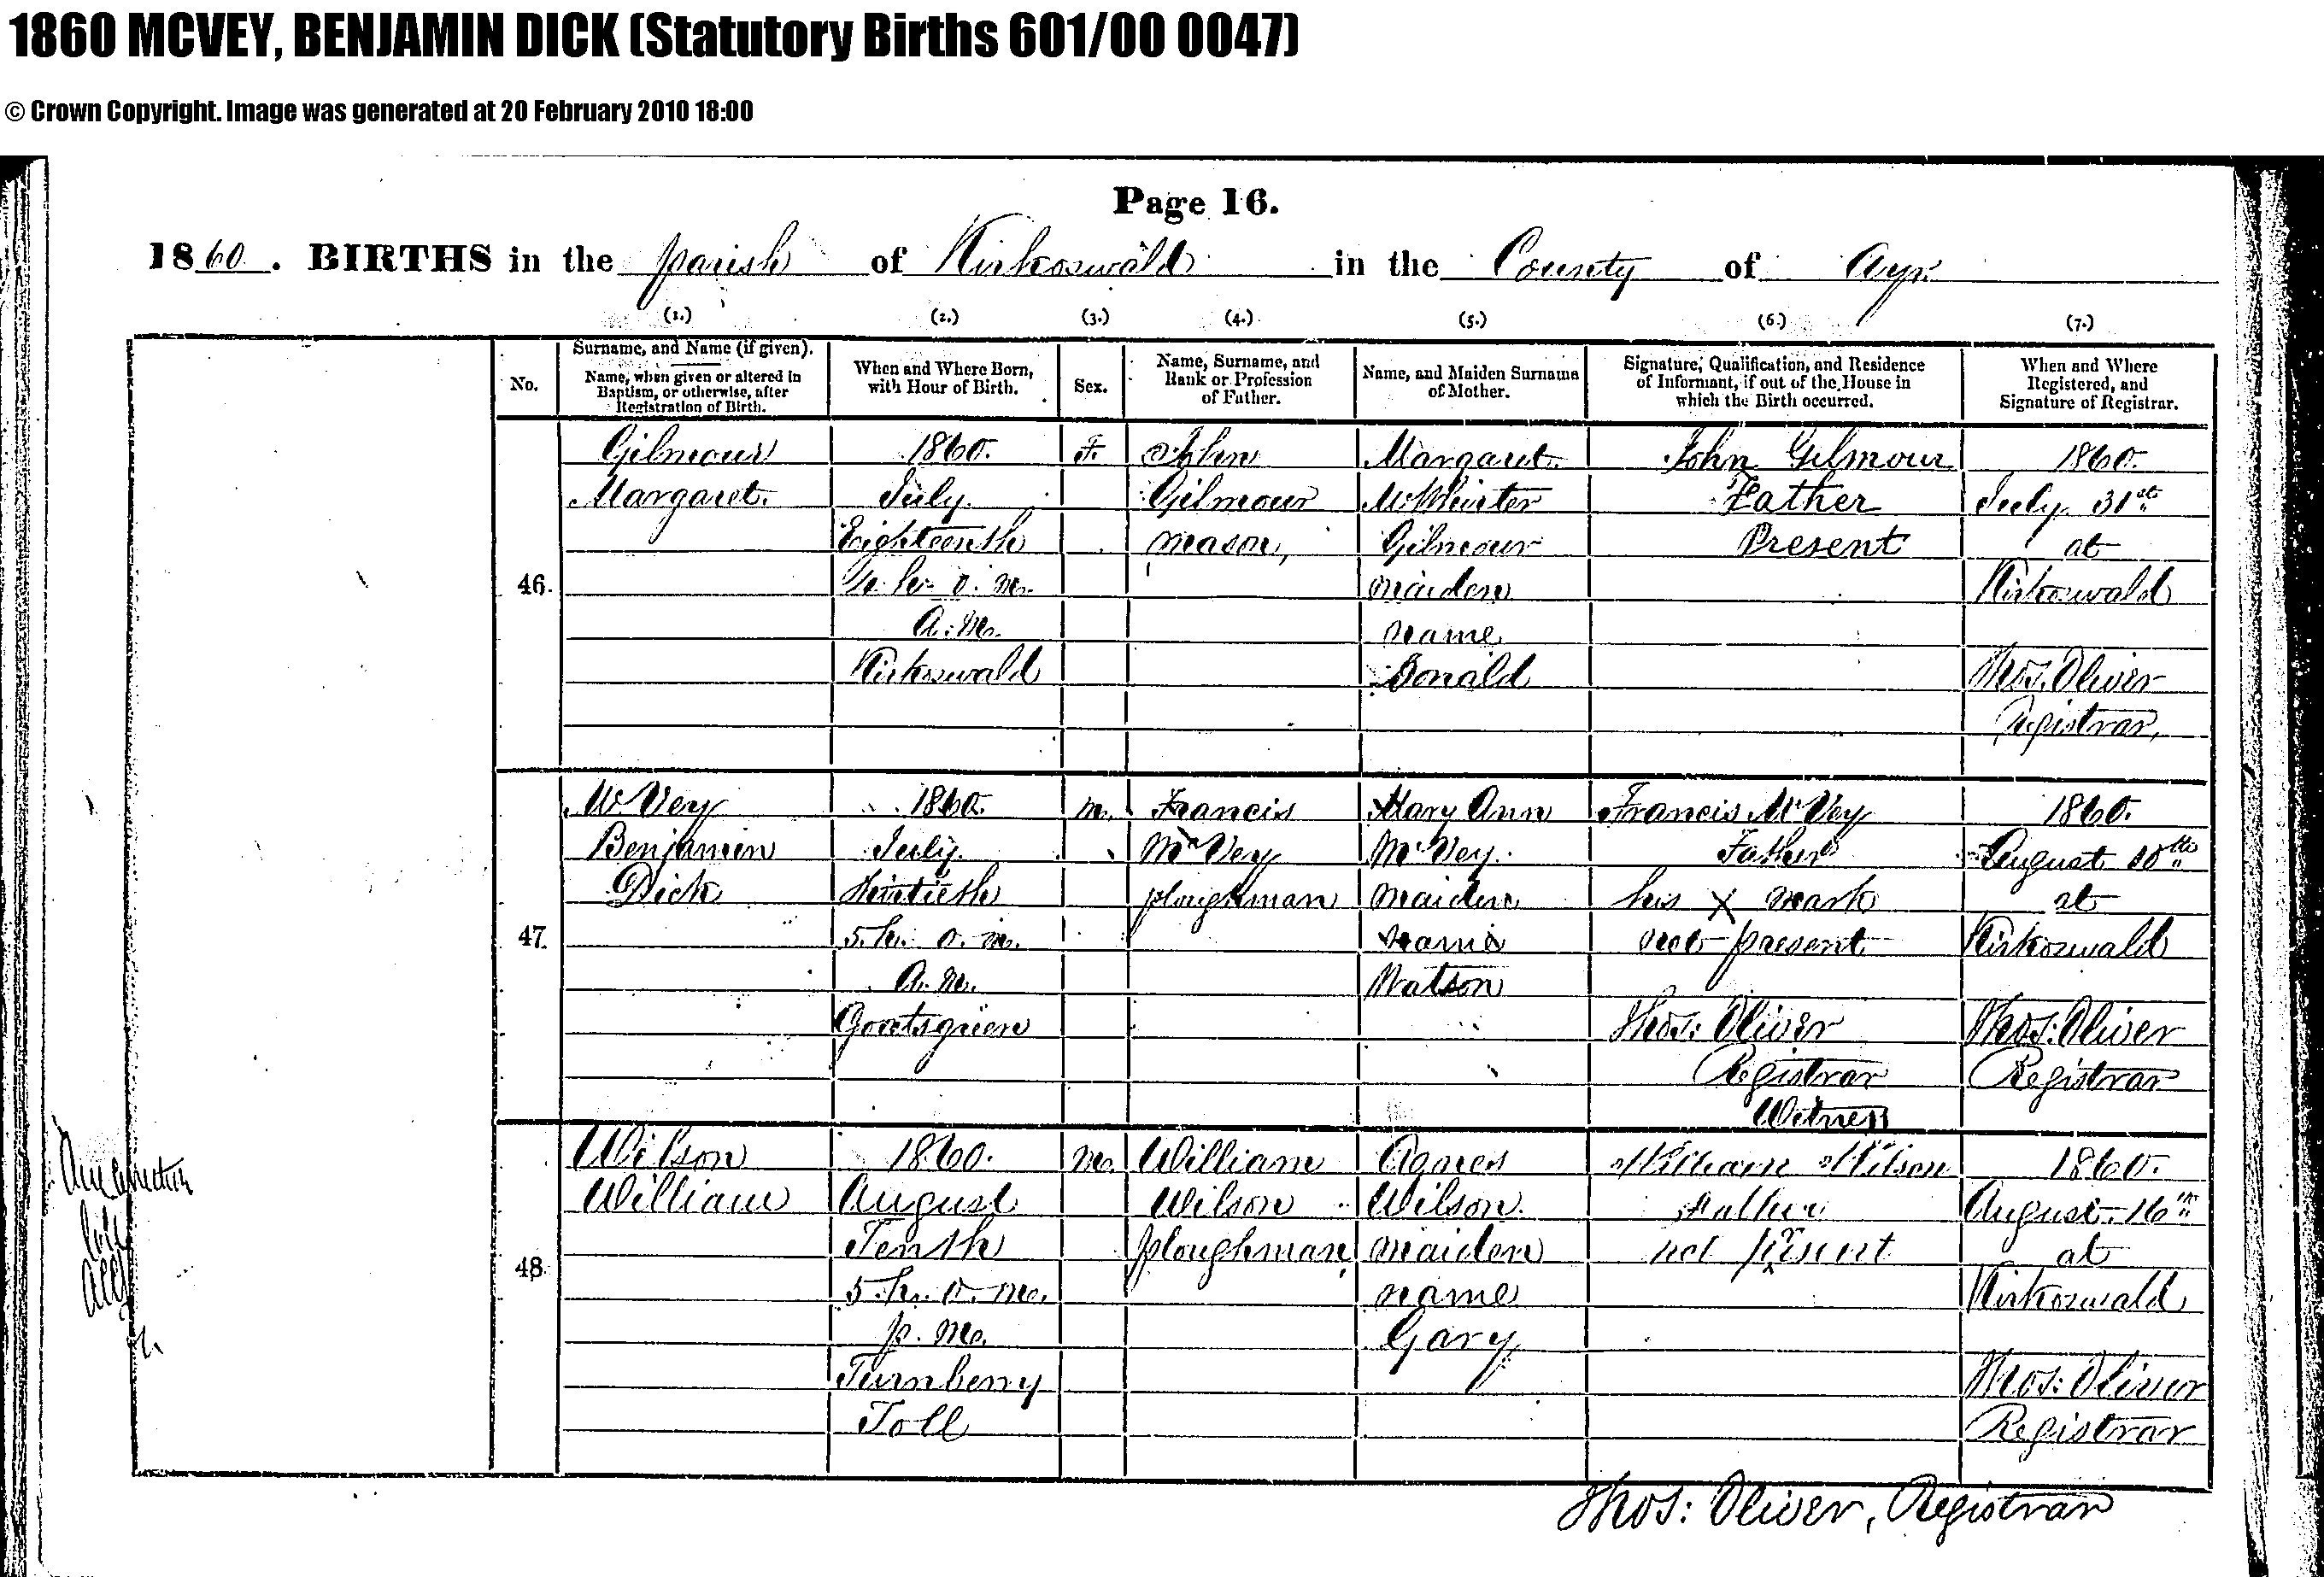 1860 MCVEY, BENJAMIN DICK (Statutory Births 601/00 0047)
© Crown Copyright. Image was generated at 20 February 2010 18:00
Page 16.
1860. BIRTHS in the parish of Kirkoswald in the County of Ayr
(1.) (2.) (3.) (4.) (5.) (6.) (7.)
No.
Surname, and Name (if given).
Name, when given or altered in
Baptism, or otherwise, after
Registration of Birth.
When and Where Born,
with Hour of Birth.
Sex.
Name, Surname, and
Rank or Profession
of Father.
Name, and Maiden Surname
of Mother.
Signature, Qualification, and Residence
of Informant, if out of the House in
which the Birth occurred.
When and Where
Registered, and
Signature of Registrar.
46.
Gilmour
Margaret.
1860.
July
Eighteenth
h. 0. m.
A. M.
Kirkoswald
F.
John
Gilmour
mason,
Margaret
McWhirter
Gilmour
maiden
name
Donald
John Gilmour
Father
Present
1860.
July 31st
at
Kirkoswald
Thos. Oliver
Registrar,
47.
McVey
Benjamin
Dick
1860.
July
Thirtieth
5. h. 0. m.
A. M.
Goatsgreen
M.
Francis
McVey
ploughman
Mary Ann
McVey
maiden
name
Watson
Francis McVey
Father
his X mark
not present
Thos: Oliver
Registrar
Witness
1860.
August 10th
at
Kirkoswald
Thos: Oliver
Registrar
48
Wilson
William
1860.
August
Tenth
5. h. 0. m.
p. m.
Turnberry
Toll
M.
William
Wilson
ploughman
Agnes
Wilson
maiden
name
Gary
William Wilson
Father
not present
1860.
August 16th
at
Kirkoswald
Thos: Oliver
Registrar
Thos: Oliver, Registrar